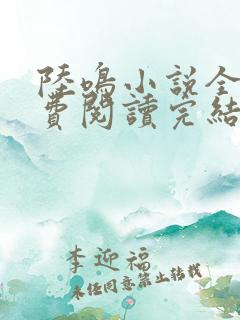 陸鳴小說全
費閱讀完結
李迎福
未经同意禁止转载